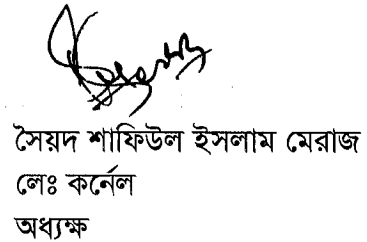 সৈয়দ শাফিউল ইসলাম মেরাজ
লেঃ কর্নেল
অধ্যক্ষ